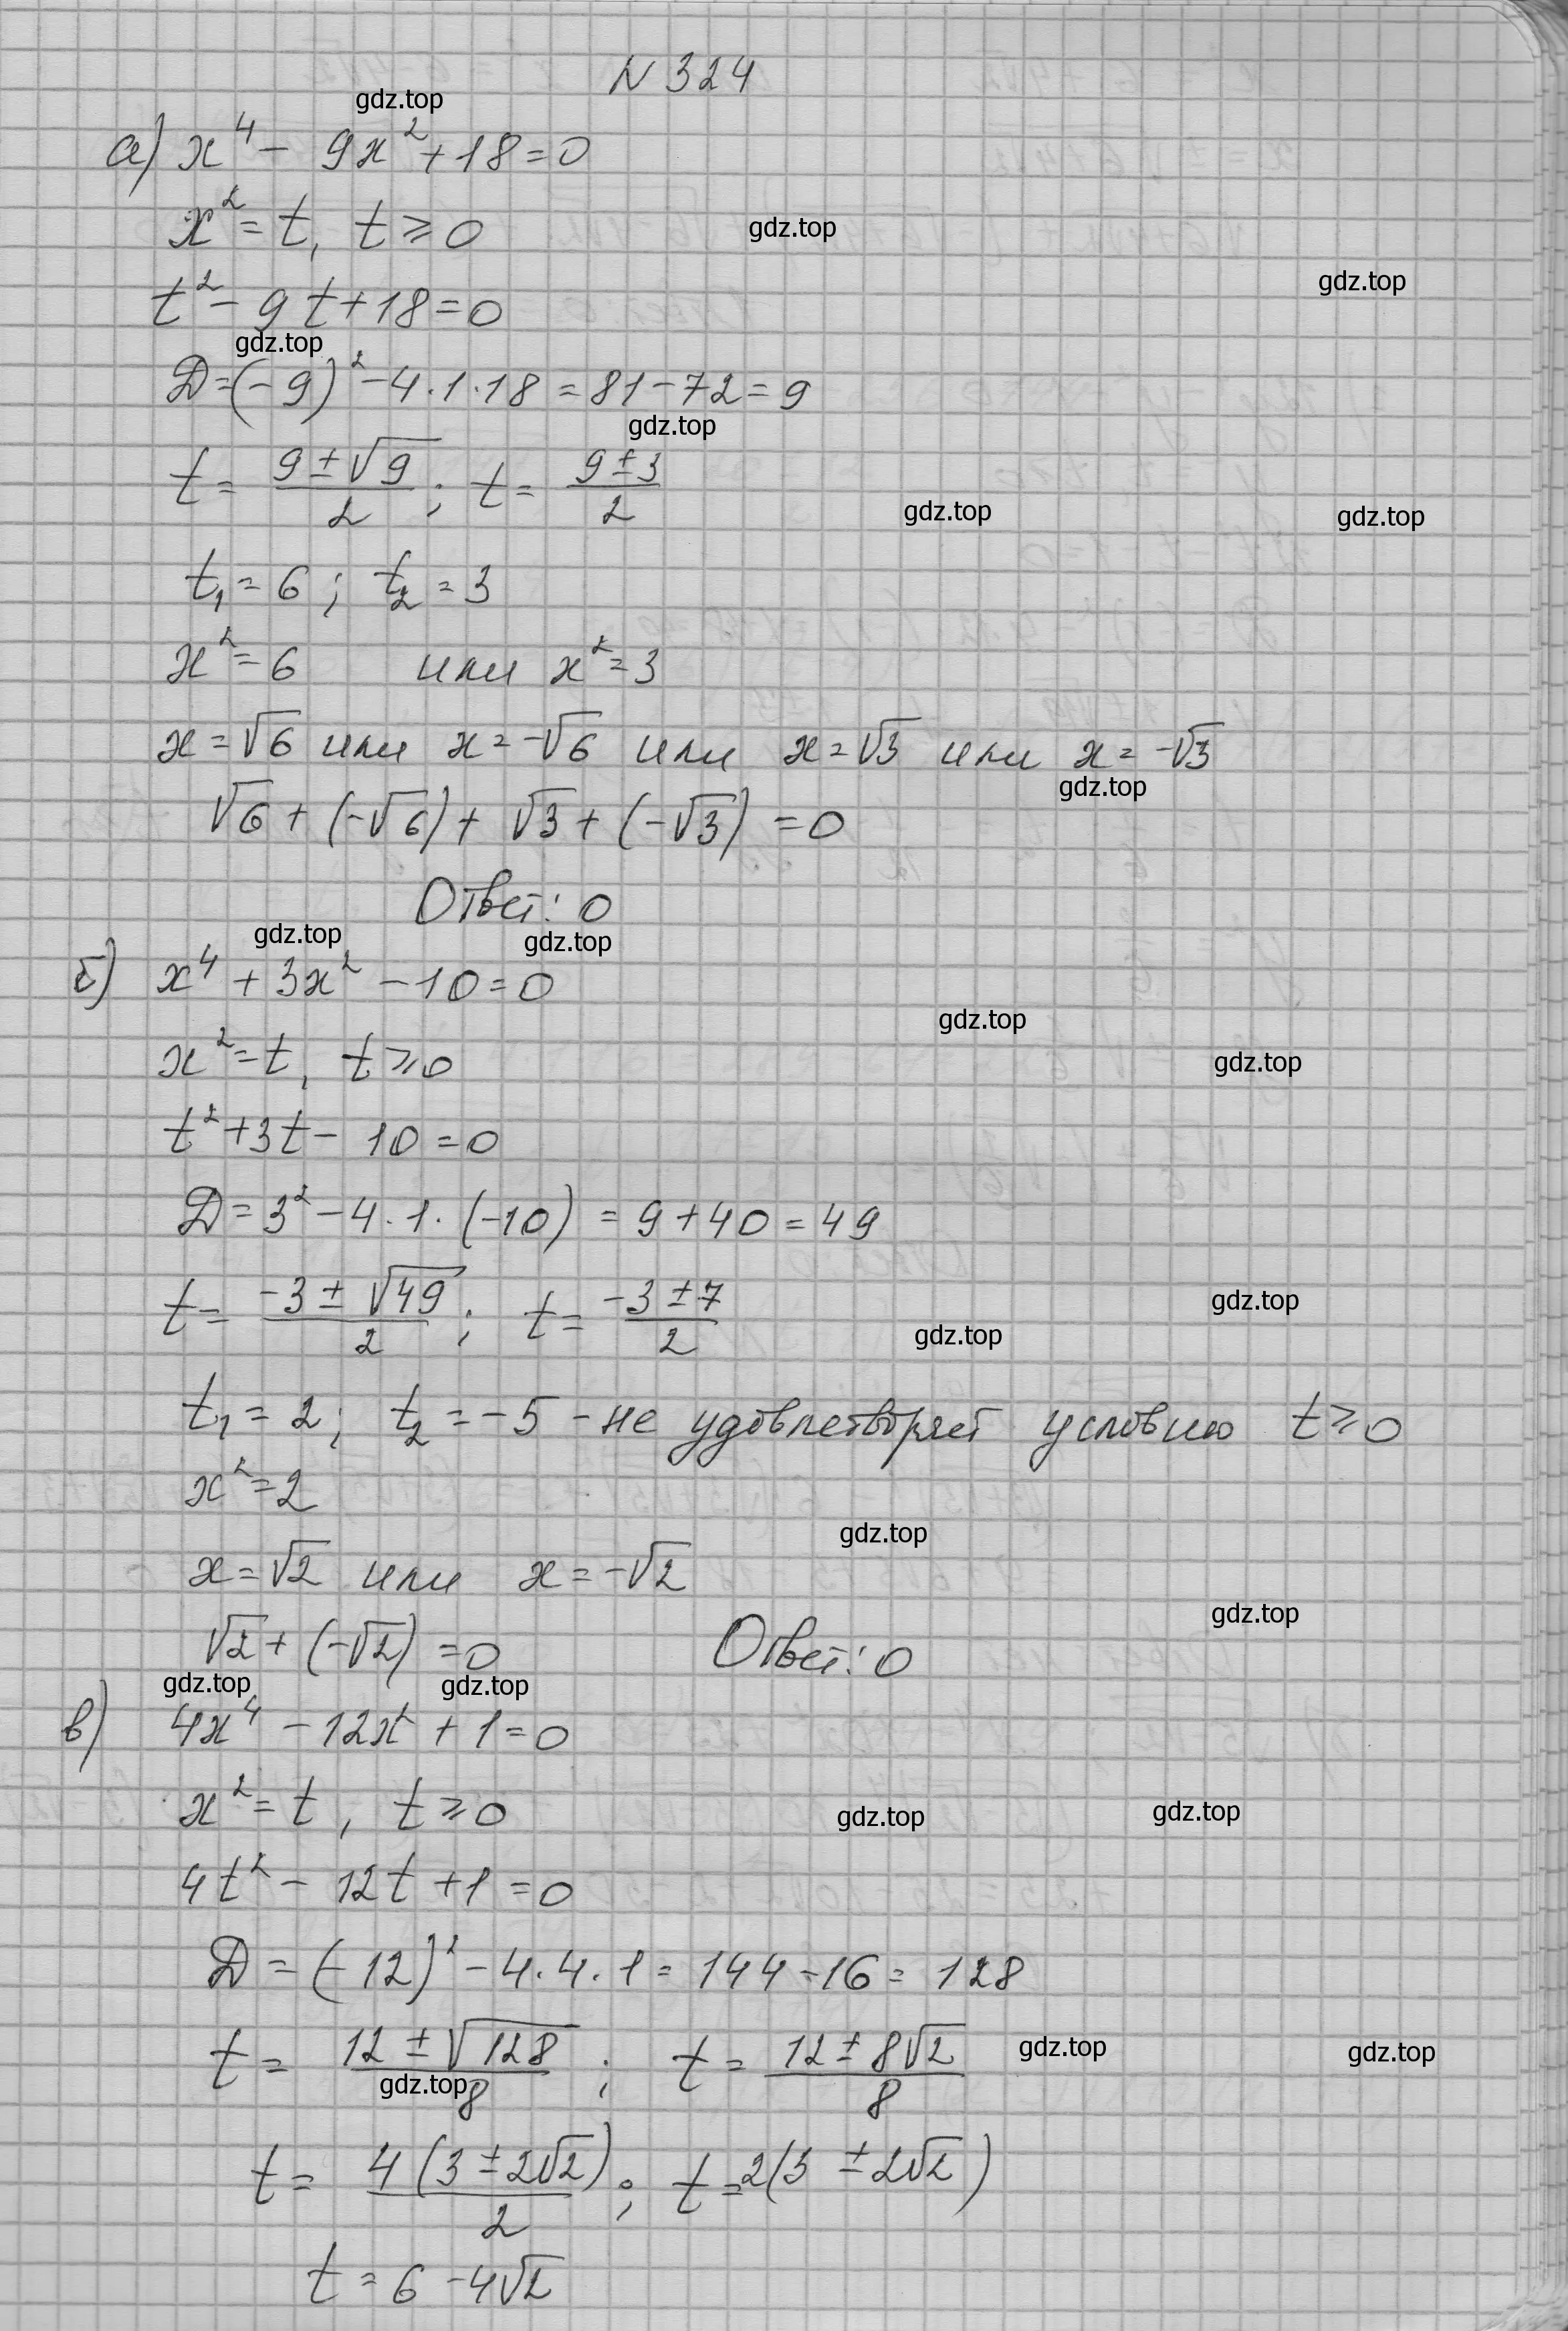 N 324
gdz.top
а) x⁴ - 9x² + 18 = 0
x² = t, t ≥ 0
gdz.top
gdz.top
t² - 9t + 18 = 0
gdz.top
Д = (-9)² - 4·1·18 = 81 - 72 = 9
gdz.top
t = (9 ± √9)/2 ; t = (9 ± 3)/2
gdz.top gdz.top
t₁ = 6 ; t₂ = 3
x² = 6 или x² = 3
x = √6 или x = -√6 или x = √3 или x = -√3
gdz.top
√6 + (-√6) + √3 + (-√3) = 0
Ответ: 0
gdz.top gdz.top
б) x⁴ + 3x² - 10 = 0
gdz.top
x² = t, t ≥ 0
gdz.top
t² + 3t - 10 = 0
Д = 3² - 4·1·(-10) = 9 + 40 = 49
gdz.top
t = (-3 ± √49)/2 ; t = (-3 ± 7)/2
gdz.top
t₁ = 2; t₂ = -5 - не удовлетворяет условию t ≥ 0
x² = 2
gdz.top
x = √2 или x = -√2
gdz.top
√2 + (-√2) = 0 Ответ: 0
gdz.top gdz.top
в) 4x⁴ - 12x² + 1 = 0
x² = t, t ≥ 0
gdz.top gdz.top
4t² - 12t + 1 = 0
Д = (-12)² - 4·4·1 = 144 - 16 = 128
t = (12 ± √128)/8 ; t = (12 ± 8√2)/8
gdz.top gdz.top
gdz.top
t = 4(3 ± 2√2)/2 ; t = 2(3 ± 2√2)
t = 6 - 4√2